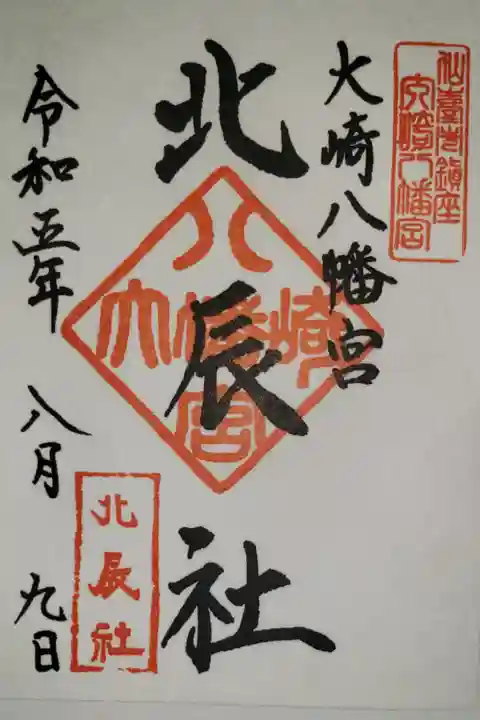 仙臺市鎮座
大崎八幡宮
大崎八幡宮
北辰社
八
大崎八幡宮
北辰社
令和五年 八月 九日